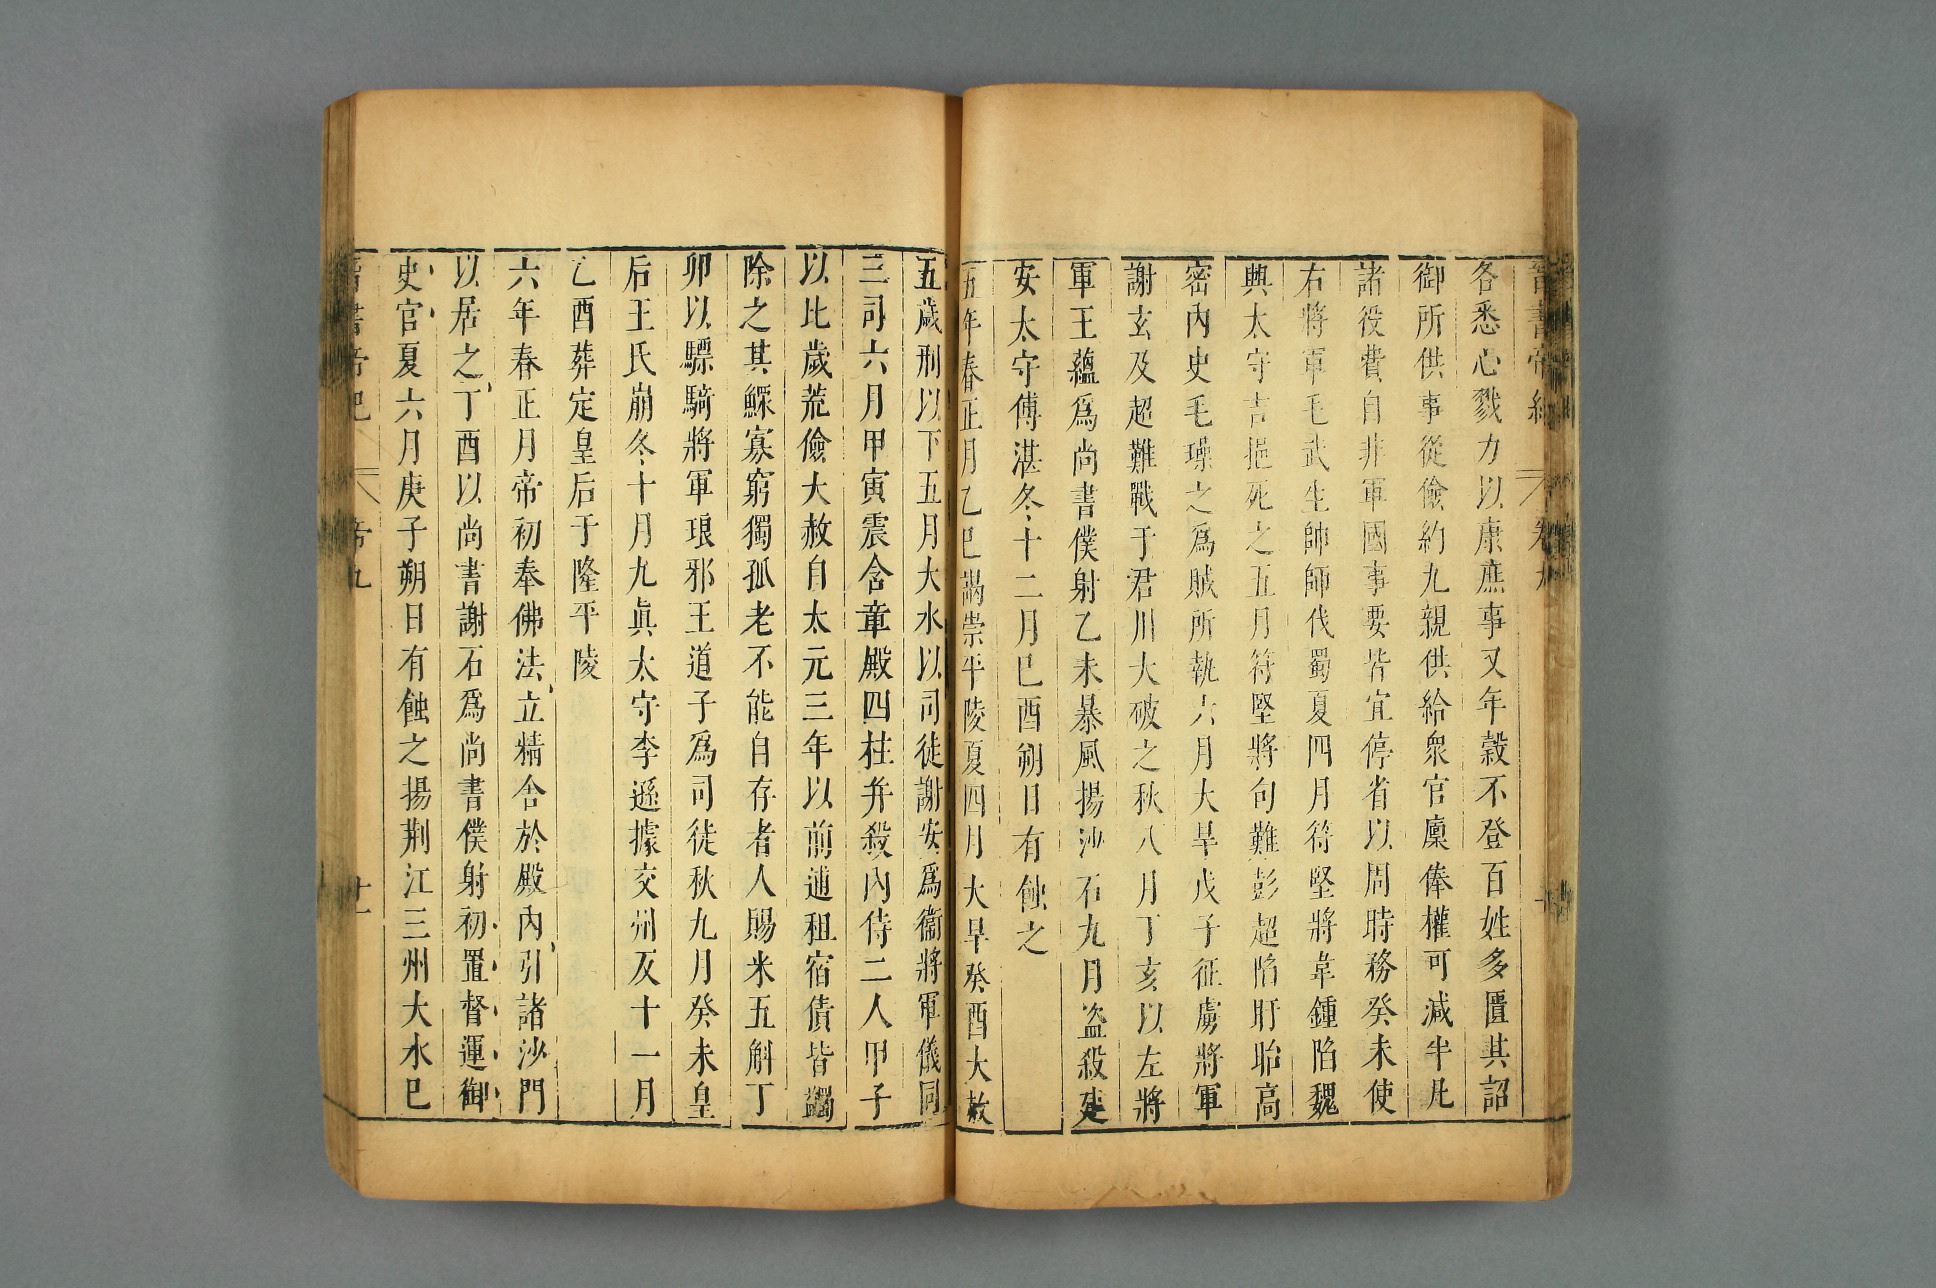 晉書帝紀 卷九 十
各悉心戮力以康庶事又年穀不登百姓多匱其詔
御所供事從儉約九親供給衆官廩俸權可減半凡
諸役費自非軍國事要皆宜停省以周時務癸未使
右將軍毛武生帥師伐蜀夏四月苻堅將韋鍾陷魏
興太守吉挹死之五月苻堅將句難彭超陷盱眙高
密內史毛璪之爲賊所執六月大旱戊子征虜將軍
謝玄及超難戰于君川大破之秋八月丁亥以左將
軍王蘊爲尚書僕射乙未暴風揚沙石九月盜殺建
安太守傅湛冬十二月己酉朔日有蝕之
五年春正月乙巳謁崇平陵夏四月大旱癸酉大赦
五歲刑以下五月大水以司徒謝安爲衞將軍儀同
三司六月甲寅震含章殿四柱并殺內侍二人甲子
以比歲荒儉大赦自太元三年以前逋租宿債皆蠲
除之其鰥寡窮獨孤老不能自存者人賜米五斛丁
卯以驃騎將軍琅邪王道子爲司徒秋九月癸未皇
后王氏崩冬十月九眞太守李遜據交州反十一月
乙酉葬定皇后于隆平陵
六年春正月帝初奉佛法立精舍於殿內引諸沙門
以居之丁酉以尚書謝石爲尚書僕射初置督運御
史官夏六月庚子朔日有蝕之揚荆江三州大水己
晉書帝紀 帝九 十一